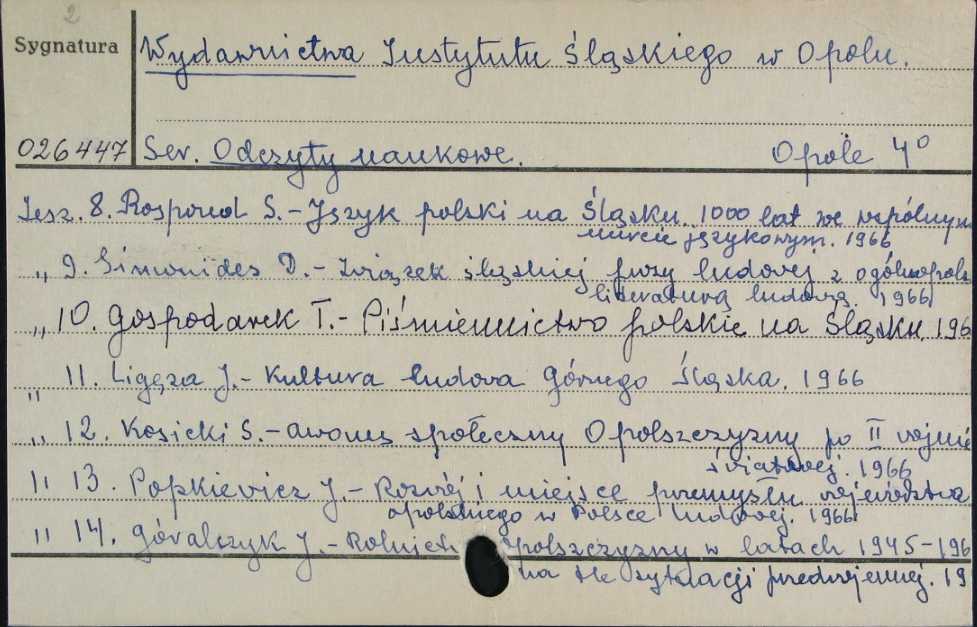 2
Sygnatura
Wydawnictwa Instytutu Śląskiego w Opolu.
026447 Ser. Odczyty naukowe. Opole 4°
Zesz. 8. Rospond S. - Język polski na Śląsku. 1000 lat we wspólnym
nurcie językowym. 1966
„ 9. Simonides D. - Związek śląskiej prozy ludowej z ogólnopols
literaturą ludową. 1966
„ 10. Gospodarek T. - Piśmiennictwo polskie na Śląsku. 196
„ 11. Ligęza J. - Kultura ludowa Górnego Śląska. 1966
„ 12. Kosicki S. - awans społeczny Opolszczyzny po II wojnie
światowej. 1966
„ 13. Popkiewicz J. - Rozwój i miejsce przemysłu województwa
opolskiego w Polsce Ludowej. 1966
„ 14. Góralczyk J. - Rolnict polszczyzny w latach 1945-196
na tle sytuacji przedwojennej. 19